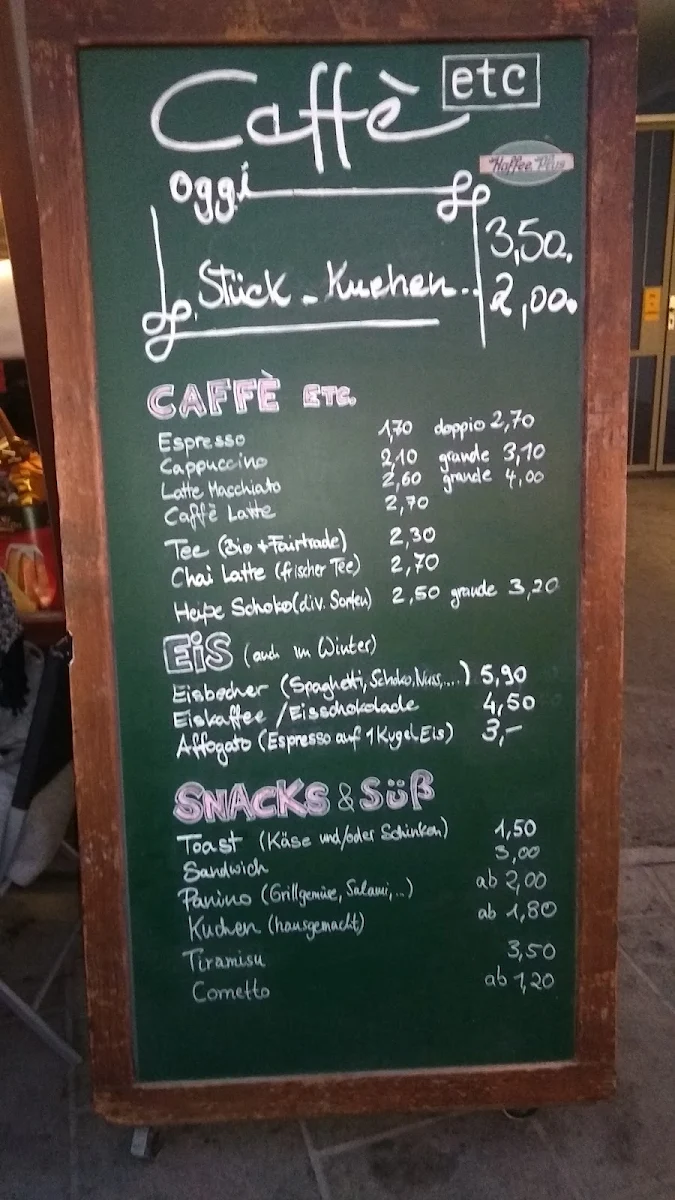 Caffè etc
Kaffee Plus
Oggi
3,50.
Stück - Kuchen.. 2,00.
CAFFÈ ETC.
Espresso 1,70 doppio 2,70
Cappuccino 2,10 grande 3,10
Latte Macchiato 2,60 grande 4,00
Caffè Latte 2,70
Tee (Bio + Fairtrade) 2,30
Chai Latte (frischer Tee) 2,70
Heiße Schoko (div. Sorten) 2,50 grande 3,20
EIS (auch im Winter)
Eisbecher (Spaghetti, Schoko, Nuss,....) 5,90
Eiskaffee / Eisschokolade 4,50
Affogato (Espresso auf 1 Kugel Eis) 3,-
SNACKS & SÜß
Toast (Käse und/oder Schinken) 1,50
Sandwich 3,00
Panino (Grillgemüse, Salami,...) ab 2,00
Kuchen (hausgemacht) ab 1,80
Tiramisu 3,50
Cornetto ab 1,20